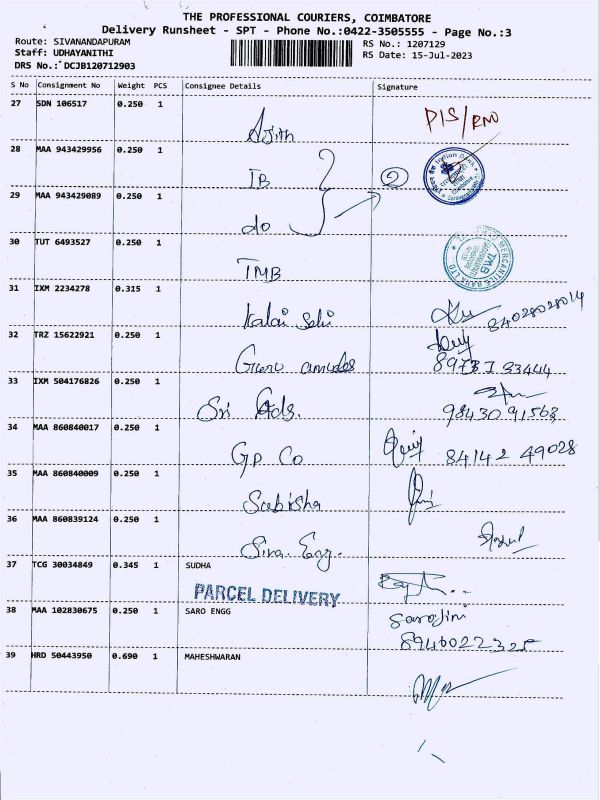 THE PROFESSIONAL COURIERS, COIMBATORE
Delivery Runsheet - SPT - Phone No.:0422-3505555 - Page No.:3
Route: SIVANANDAPURAM RS No.: 1207129
Staff: UDHAYANITHI RS Date: 15-Jul-2023
DRS No.: DCJB120712903
S No Consignment No Weight PCS Consignee Details Signature
27 SDN 106517 0.250 1
Ajith
28 MAA 943429956 0.250 1
IB 2 Indian Bank
29 MAA 943429089 0.250 1
do
30 TUT 6493527 0.250 1
TMB TMB MERCANTILE BANK LTD
31 IXM 2234278 0.315 1
Kalai Selvi 84028028014
32 TRZ 15622921 0.250 1
33 IXM 504176826 0.250 1
Sri Ads. 98430 91568
34 MAA 860840017 0.250 1
GP Co 84142 49028
35 MAA 860840009 0.250 1
Sabisha
36 MAA 860839124 0.250 1
Siva. Eng.
37 TCG 30034849 0.345 1 SUDHA
PARCEL DELIVERY
38 MAA 102830675 0.250 1 SARO ENGG Sarojini
8946022325
39 HRD 50443950 0.690 1 MAHESHWARAN